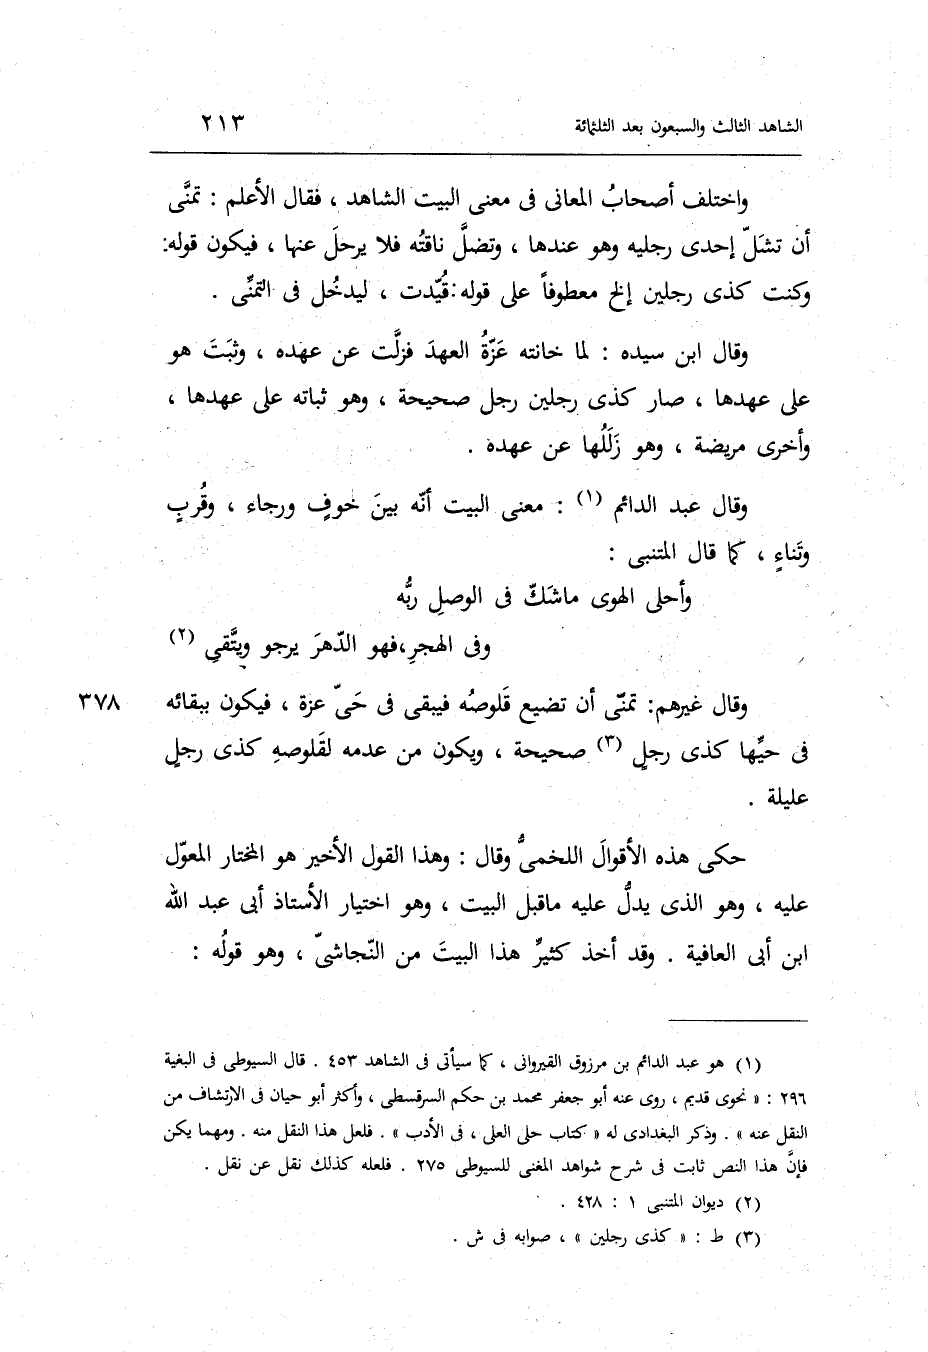 الشاهد الثالث والسبعون بعد الثلثمائة ٢١٣
واختلف أصحابُ المعانى فى معنى البيت الشاهد ، فقال الأعلم : تمنَّى
أن تشَلّ إحدى رجليه وهو عندها ، وتضلَّ ناقتُه فلا يرحلَ عنها ، فيكون قوله:
وكنت كذى رجلين إلخ معطوفاً على قوله:قُيّدت ، ليدخُل فى التمنِّى .
وقال ابن سيده : لما خانته عَزّةُ العهدَ فزلَّت عن عهده ، وثبَتَ هو
على عهدها ، صار كذى رجلين رجل صحيحة ، وهو ثباته على عهدها ،
وأخرى مريضة ، وهو زَلَلُها عن عهده .
وقال عبد الدائم (١) : معنى البيت أنّه بينَ خوفٍ ورجاء ، وقُربٍ
وتَناءٍ ، كما قال المتنبى :
وأحلى الهوى ماشَكّ فى الوصلِ ربُّه
وفى الهجرِ،فهو الدّهرَ يرجو ويتَّقىِ (٢)
وقال غيرهم: تمنّى أن تضيع قَلوصُه فيبقى فى حَىّ عزة ، فيكون ببقائه ٣٧٨
فى حيِّها كذى رجلٍ (٣) صحيحة ، ويكون من عدمه لقَلوصهِ كذى رجلٍ
عليلة .
حكى هذه الأقوالَ اللخمىُّ وقال : وهذا القول الأخير هو المختار المعوّل
عليه ، وهو الذى يدلُّ عليه ماقبل البيت ، وهو اختيار الأستاذ أبى عبد الله
ابن أبى العافية . وقد أخذ كثيرٌ هذا البيتَ من النّجاشىّ ، وهو قولُه :
(١) هو عبد الدائم بن مرزوق القيروانى ، كما سيأتى فى الشاهد ٤٥٣ . قال السيوطى فى البغية
٢٩٦ : « نحوى قديم ، روى عنه أبو جعفر محمد بن حكم السرقسطى ، وأكثر أبو حيان فى الارتشاف من
النقل عنه » . وذكر البغدادى له « كتاب حلى العلى ، فى الأدب » . فلعل هذا النقل منه . ومهما يكن
فإنَّ هذا النص ثابت فى شرح شواهد المغنى للسيوطى ٢٧٥ . فلعله كذلك نقل عن نقل .
(٢) ديوان المتنبى ١ : ٤٢٨ .
(٣) ط : « كذى رجلين » ، صوابه فى ش .